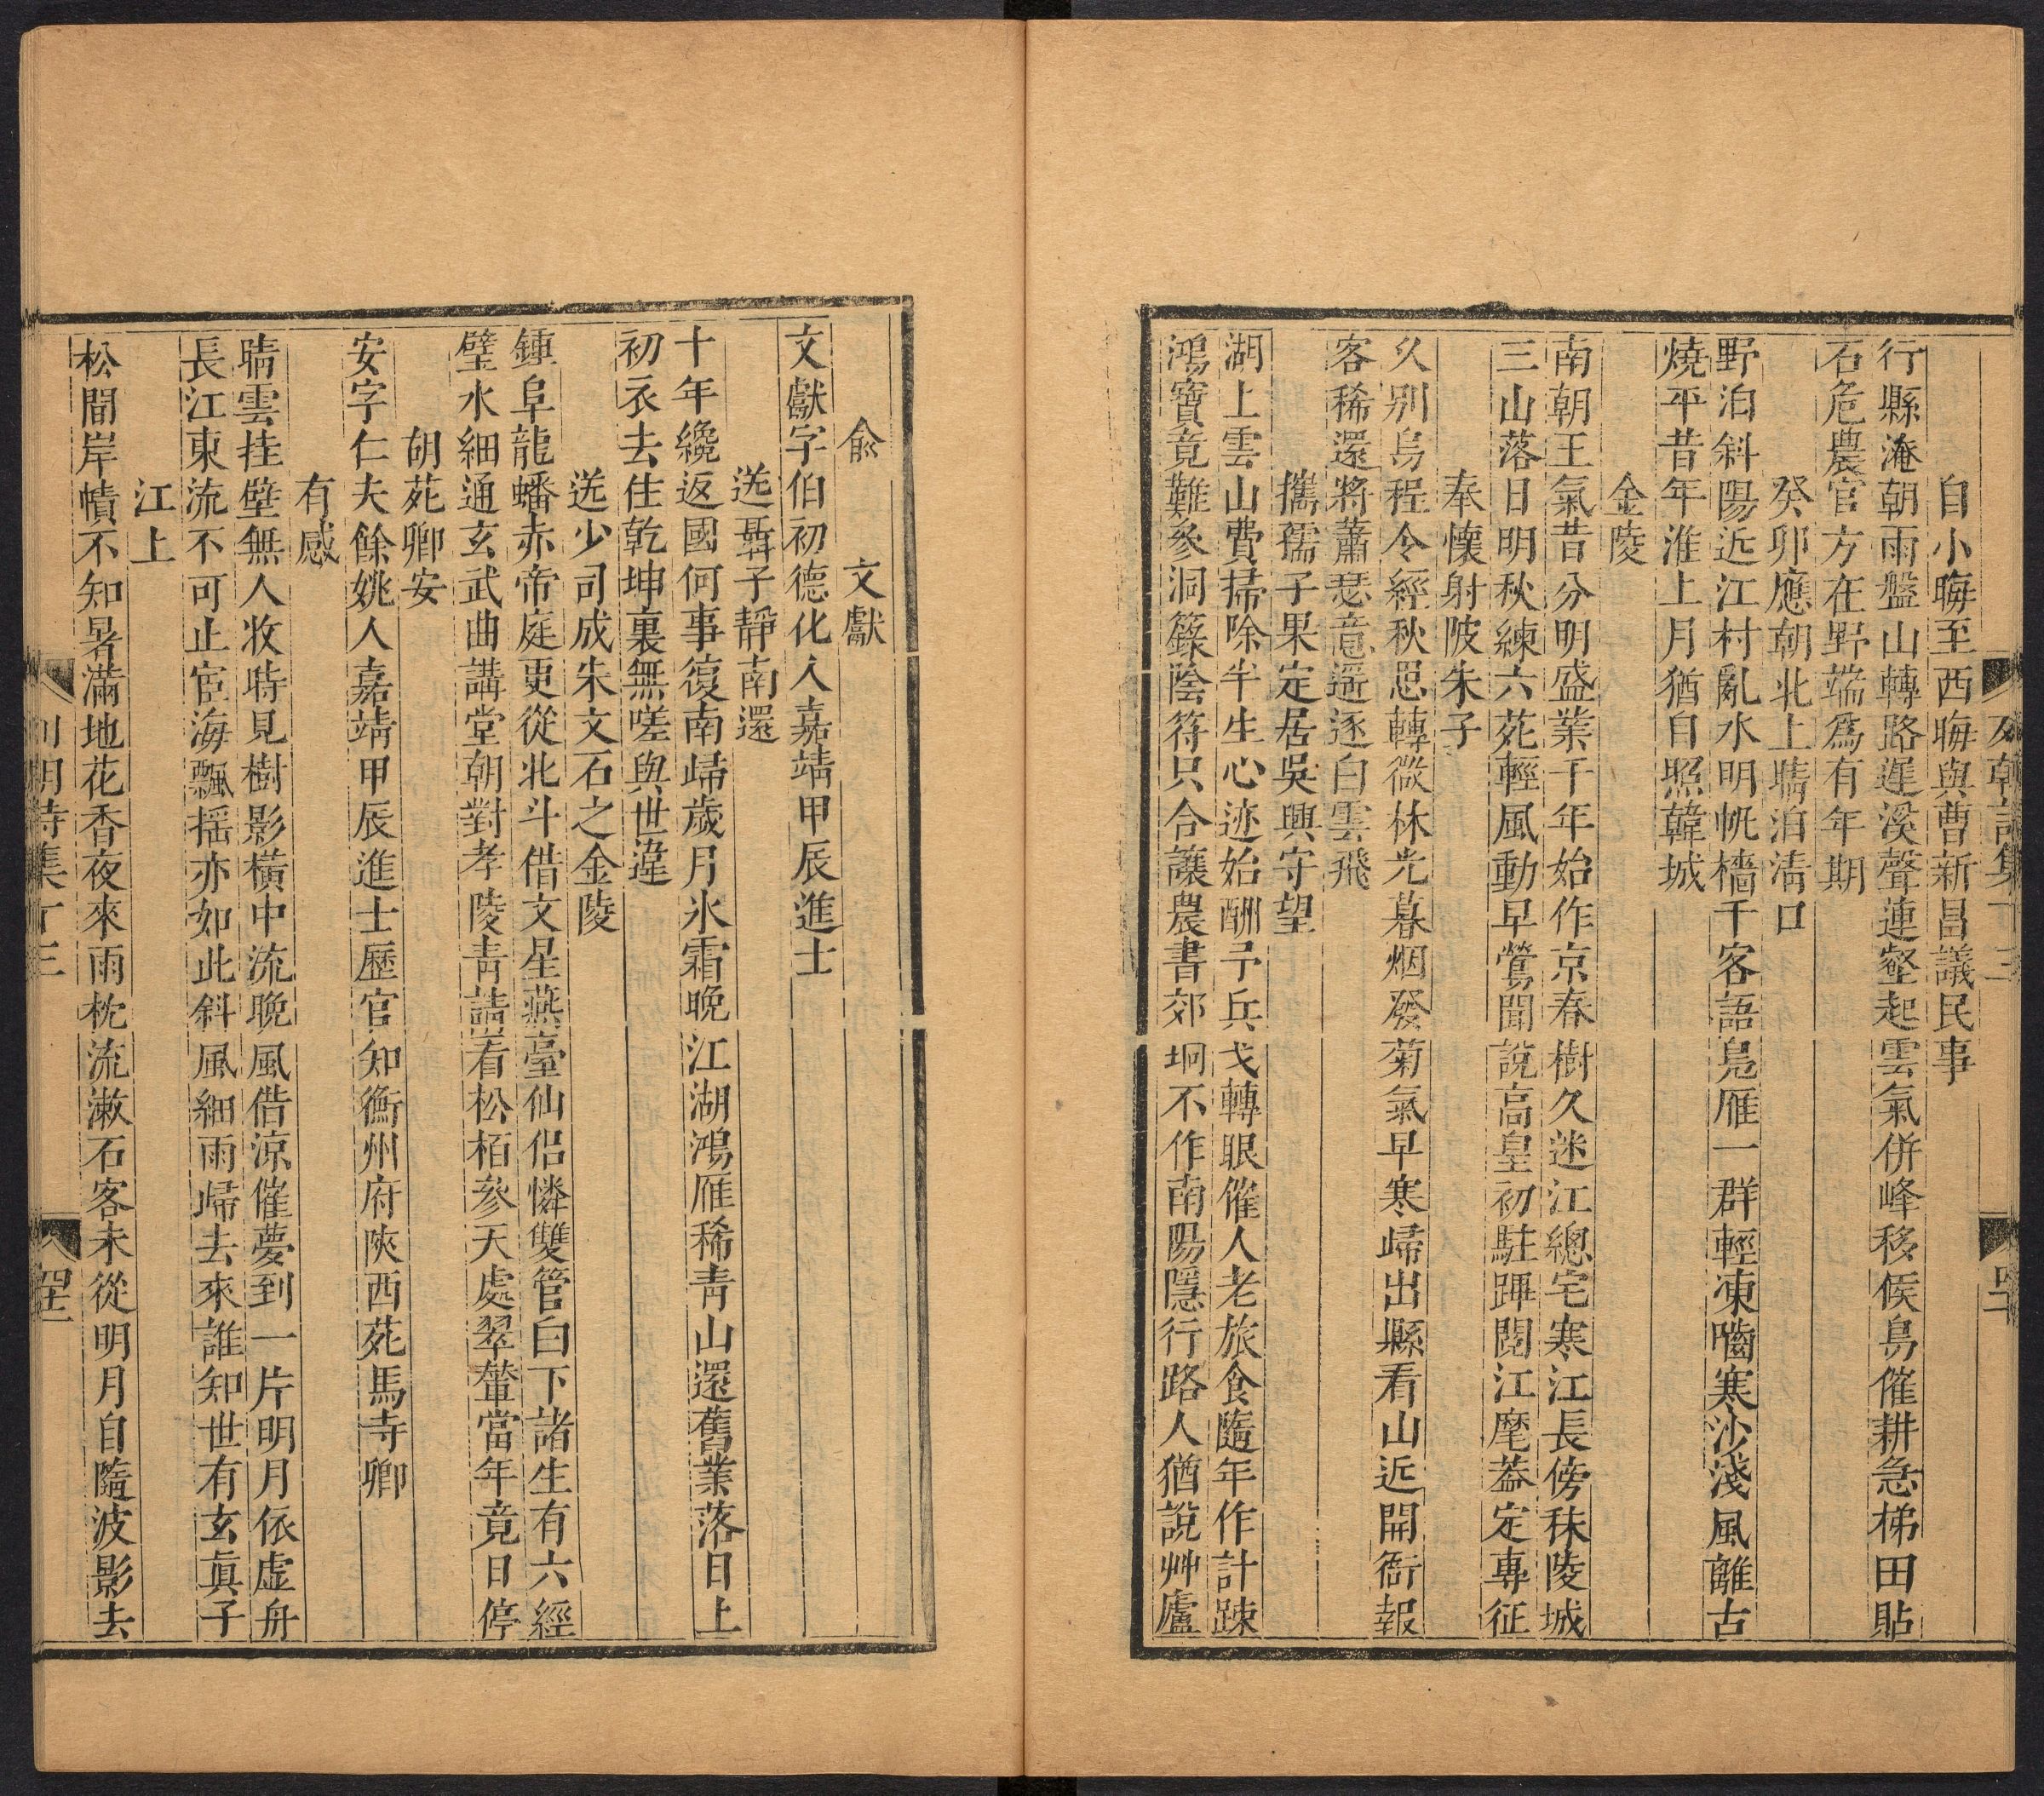 自小晦至西晦與曹新昌議民事
行縣淹朝雨盤山轉路遲溪聲連壑起雲氣併峰移候鳥催耕急梯田貼
石危農官方在野端爲有年期
癸卯應朝北上晴泊淸口
野泊斜陽近江村亂水明帆檣千客語鳧雁一群輕凍嚙寒沙淺風離古
燒平昔年淮上月猶自照韓城
金陵
南朝王氣昔分明盛業千年始作京春樹久迷江總宅寒江長傍秣陵城
三山落日明秋練六苑輕風動早鶯聞說高皇初駐蹕閱江麾葢定專征
奉懷射陂朱子
久别烏程令經秋思轉微林光暮烟發菊氣早寒歸出縣看山近開衙報
客稀還將蕭瑟意遥逐白雲飛
攜孺子果定居吳興守望
湖上雲山費掃除半生心迹始酬予兵戈轉眼催人老旅食隨年作計踈
鴻寳竟難叅洞籙陰符只合讓農書郊坰不作南陽隱行路人猶說艸廬
兪文獻
文獻字伯初德化人嘉靖甲辰進士
送聶子靜南還
十年纔返國何事復南歸歲月氷霜晚江湖鴻雁稀靑山還舊業落日上
初衣去住乾坤裏無嗟與世違
送少司成朱文石之金陵
鍾阜龍蟠赤帝庭更從北斗借文星燕臺仙侶憐雙管白下諸生有六經
璧水細通玄武曲講堂朝對孝陵靑請看松栢參天處翠輦當年竟日停
胡苑卿安
安字仁夫餘姚人嘉靖甲辰進士歷官知衡州府陝西苑馬寺卿
有感
晴雲挂壁無人收時見樹影橫中流晚風借涼催夢到一片明月依虛舟
長江東流不可止宦海飄揺亦如此斜風細雨歸去來誰知世有玄眞子
江上
松間岸幘不知暑滿地花香夜來雨枕流漱石客未從明月自隨波影去